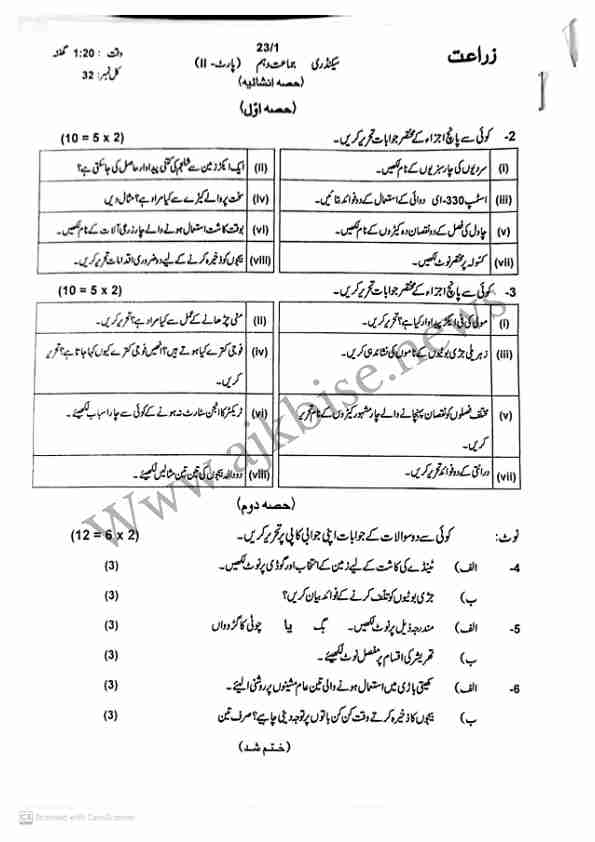 زراعت
23/1
سیکنڈری جماعت دہم (پارٹ - II)
وقت : 1:20 گھنٹہ
کل نمبر: 32
(حصہ انشائیہ)
(حصہ اوّل)
2- کوئی سے پانچ اجزاء کے مختصر جوابات تحریر کریں۔ (10 = 5 x 2)
(i) سردیوں کی چار سبزیوں کے نام لکھیں۔
(ii) ایک ایکڑ زمین سے شلجم کی کتنی پیداوار حاصل کی جاسکتی ہے؟
(iii) اسٹپ 330-ای دوائی کے استعمال کے دو فوائد بتائیں۔
(iv) سخت پر والے کیڑے سے کیا مراد ہے؟ مثال دیں
(v) چاول کی فصل کے دو نقصان دہ کیڑوں کے نام لکھیں۔
(vi) بوقت کاشت استعمال ہونے والے چار زرعی آلات کے نام لکھیں۔
(vii) کنولہ پر مختصر نوٹ لکھیں۔
(viii) بیجوں کو ذخیرہ کرنے کے لیے دو ضروری اقدامات تحریر کریں۔
3- کوئی سے پانچ اجزاء کے مختصر جوابات تحریر کریں۔ (10 = 5 x 2)
(i) مولی کی فی ایکڑ پیداوار کیا ہے؟ تحریر کریں۔
(ii) مٹی چڑھانے کے عمل سے کیا مراد ہے؟ تحریر کریں۔
(iii) زہریلی جڑی بوٹیوں کے ناموں کی نشاندہی کریں۔
(iv) فوجی کترے کیا ہوتے ہیں؟ انھیں فوجی کترے کیوں کہا جاتا ہے؟ تحریر
کریں۔
(v) مختلف فصلوں کو نقصان پہنچانے والے چار مشہور کیڑوں کے نام تحریر
کریں۔
(vi) ٹریکٹر کا انجن سٹارٹ نہ ہونے کے کوئی سے چار اسباب لکھیئے۔
(vii) درانتی کے دو فوائد تحریر کریں۔
(viii) زود الد بیجوں کی تین تین مثالیں لکھیئے۔
(حصہ دوم)
نوٹ: کوئی سے دو سوالات کے جوابات اپنی جوابی کاپی پر تحریر کریں۔ (12 = 6 x 2)
4- الف) ٹینڈے کی کاشت کے لیے زمین کے انتخاب اور گوڈی پر نوٹ لکھیں۔ (3)
ب) جڑی بوٹیوں کو تلف کرنے کے فوائد بیان کریں؟ (3)
5- الف) مندرجہ ذیل پر نوٹ لکھیں۔ بگ یا چوٹی کا گڑوواں (3)
ب) تھریشر کی اقسام پر مفصل نوٹ لکھیئے۔ (3)
6- الف) کھیتی باڑی میں استعمال ہونے والی تین عام مشینوں پر روشنی ڈالیئے۔ (3)
ب) بیجوں کا ذخیرہ کرتے وقت کن کن باتوں پر توجہ دینی چاہیے؟ صرف تین (3)
(ختم شد)
www.ajkbise.news
CS Scanned with CamScanner